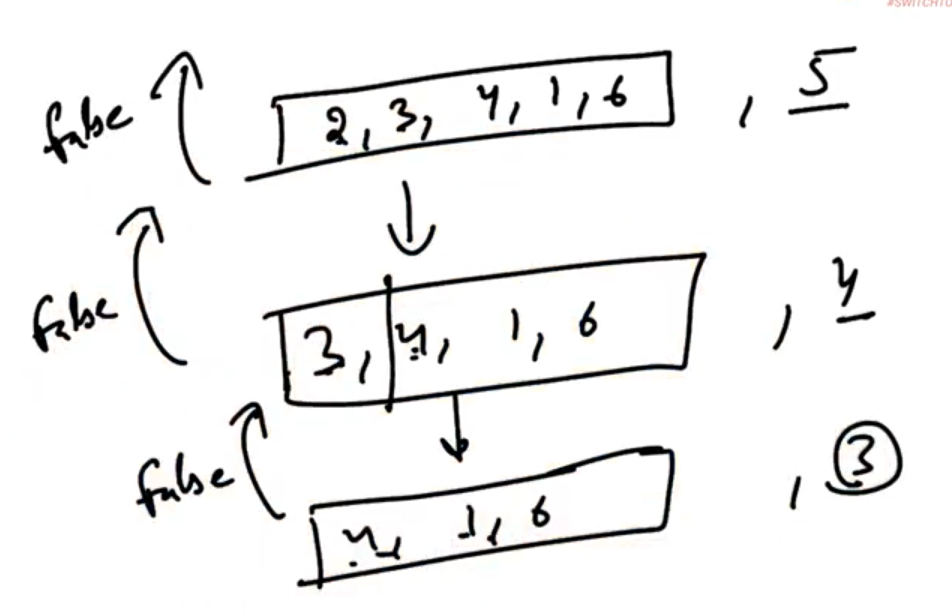 #SWITCHTO
false 2, 3, 4, 1, 6 , 5
false 3, 4, 1, 6 , 4
false 4, 1, 6 , 3